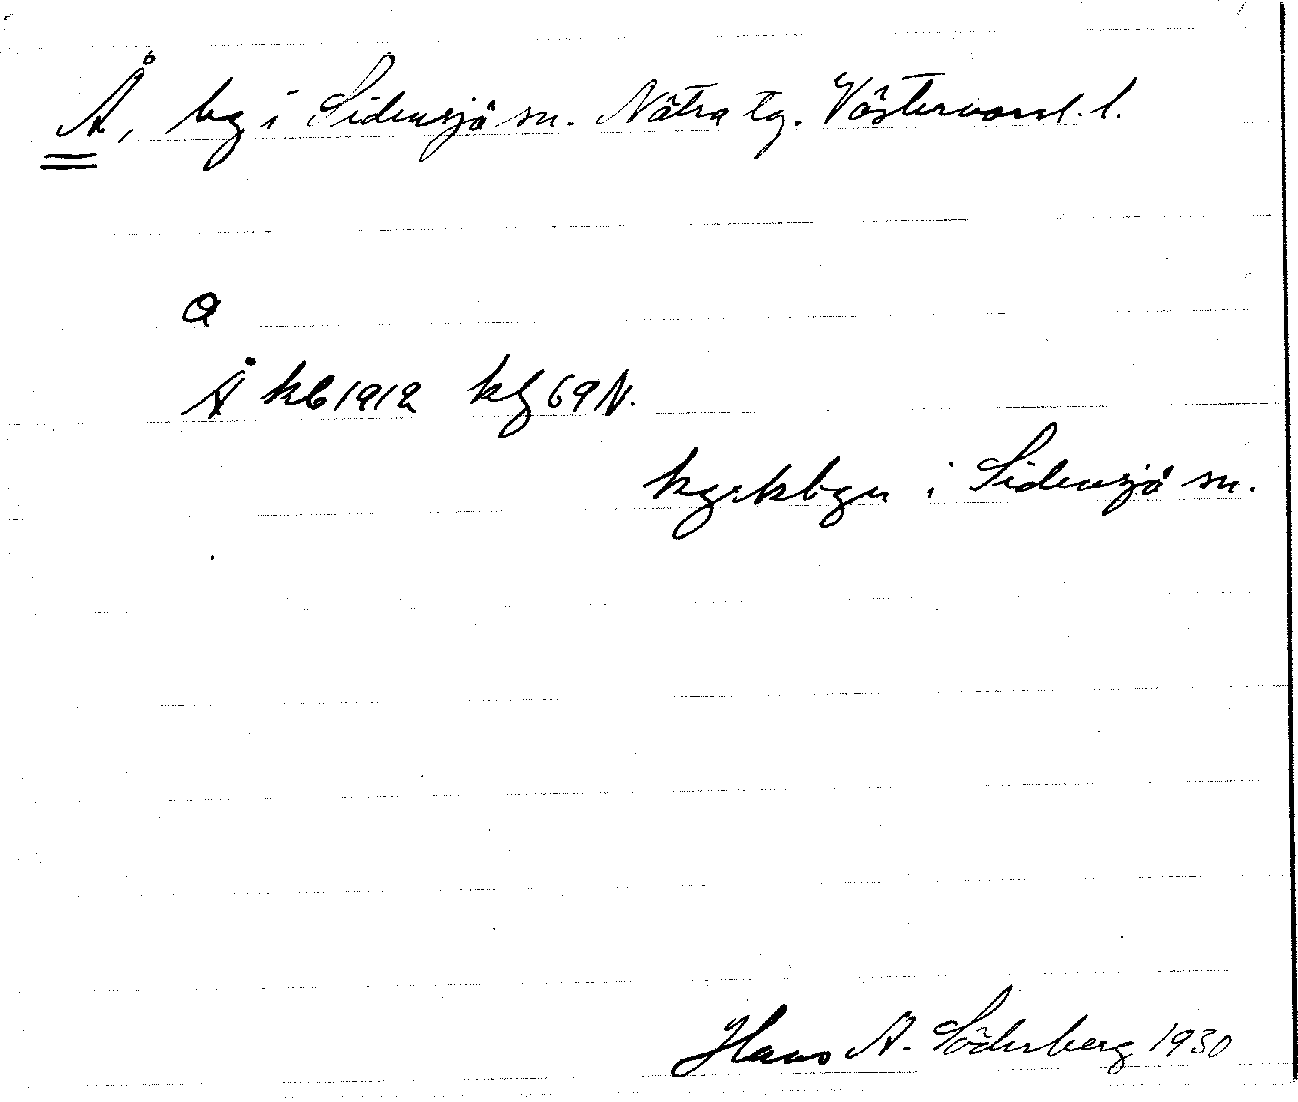 Å, by i Sidensjö sn. Nätra tg. Västernorrl. l.
a
Å kb 1912 kf 69 N.
i Sidensjö sn.
Hans A. Söderberg 1930